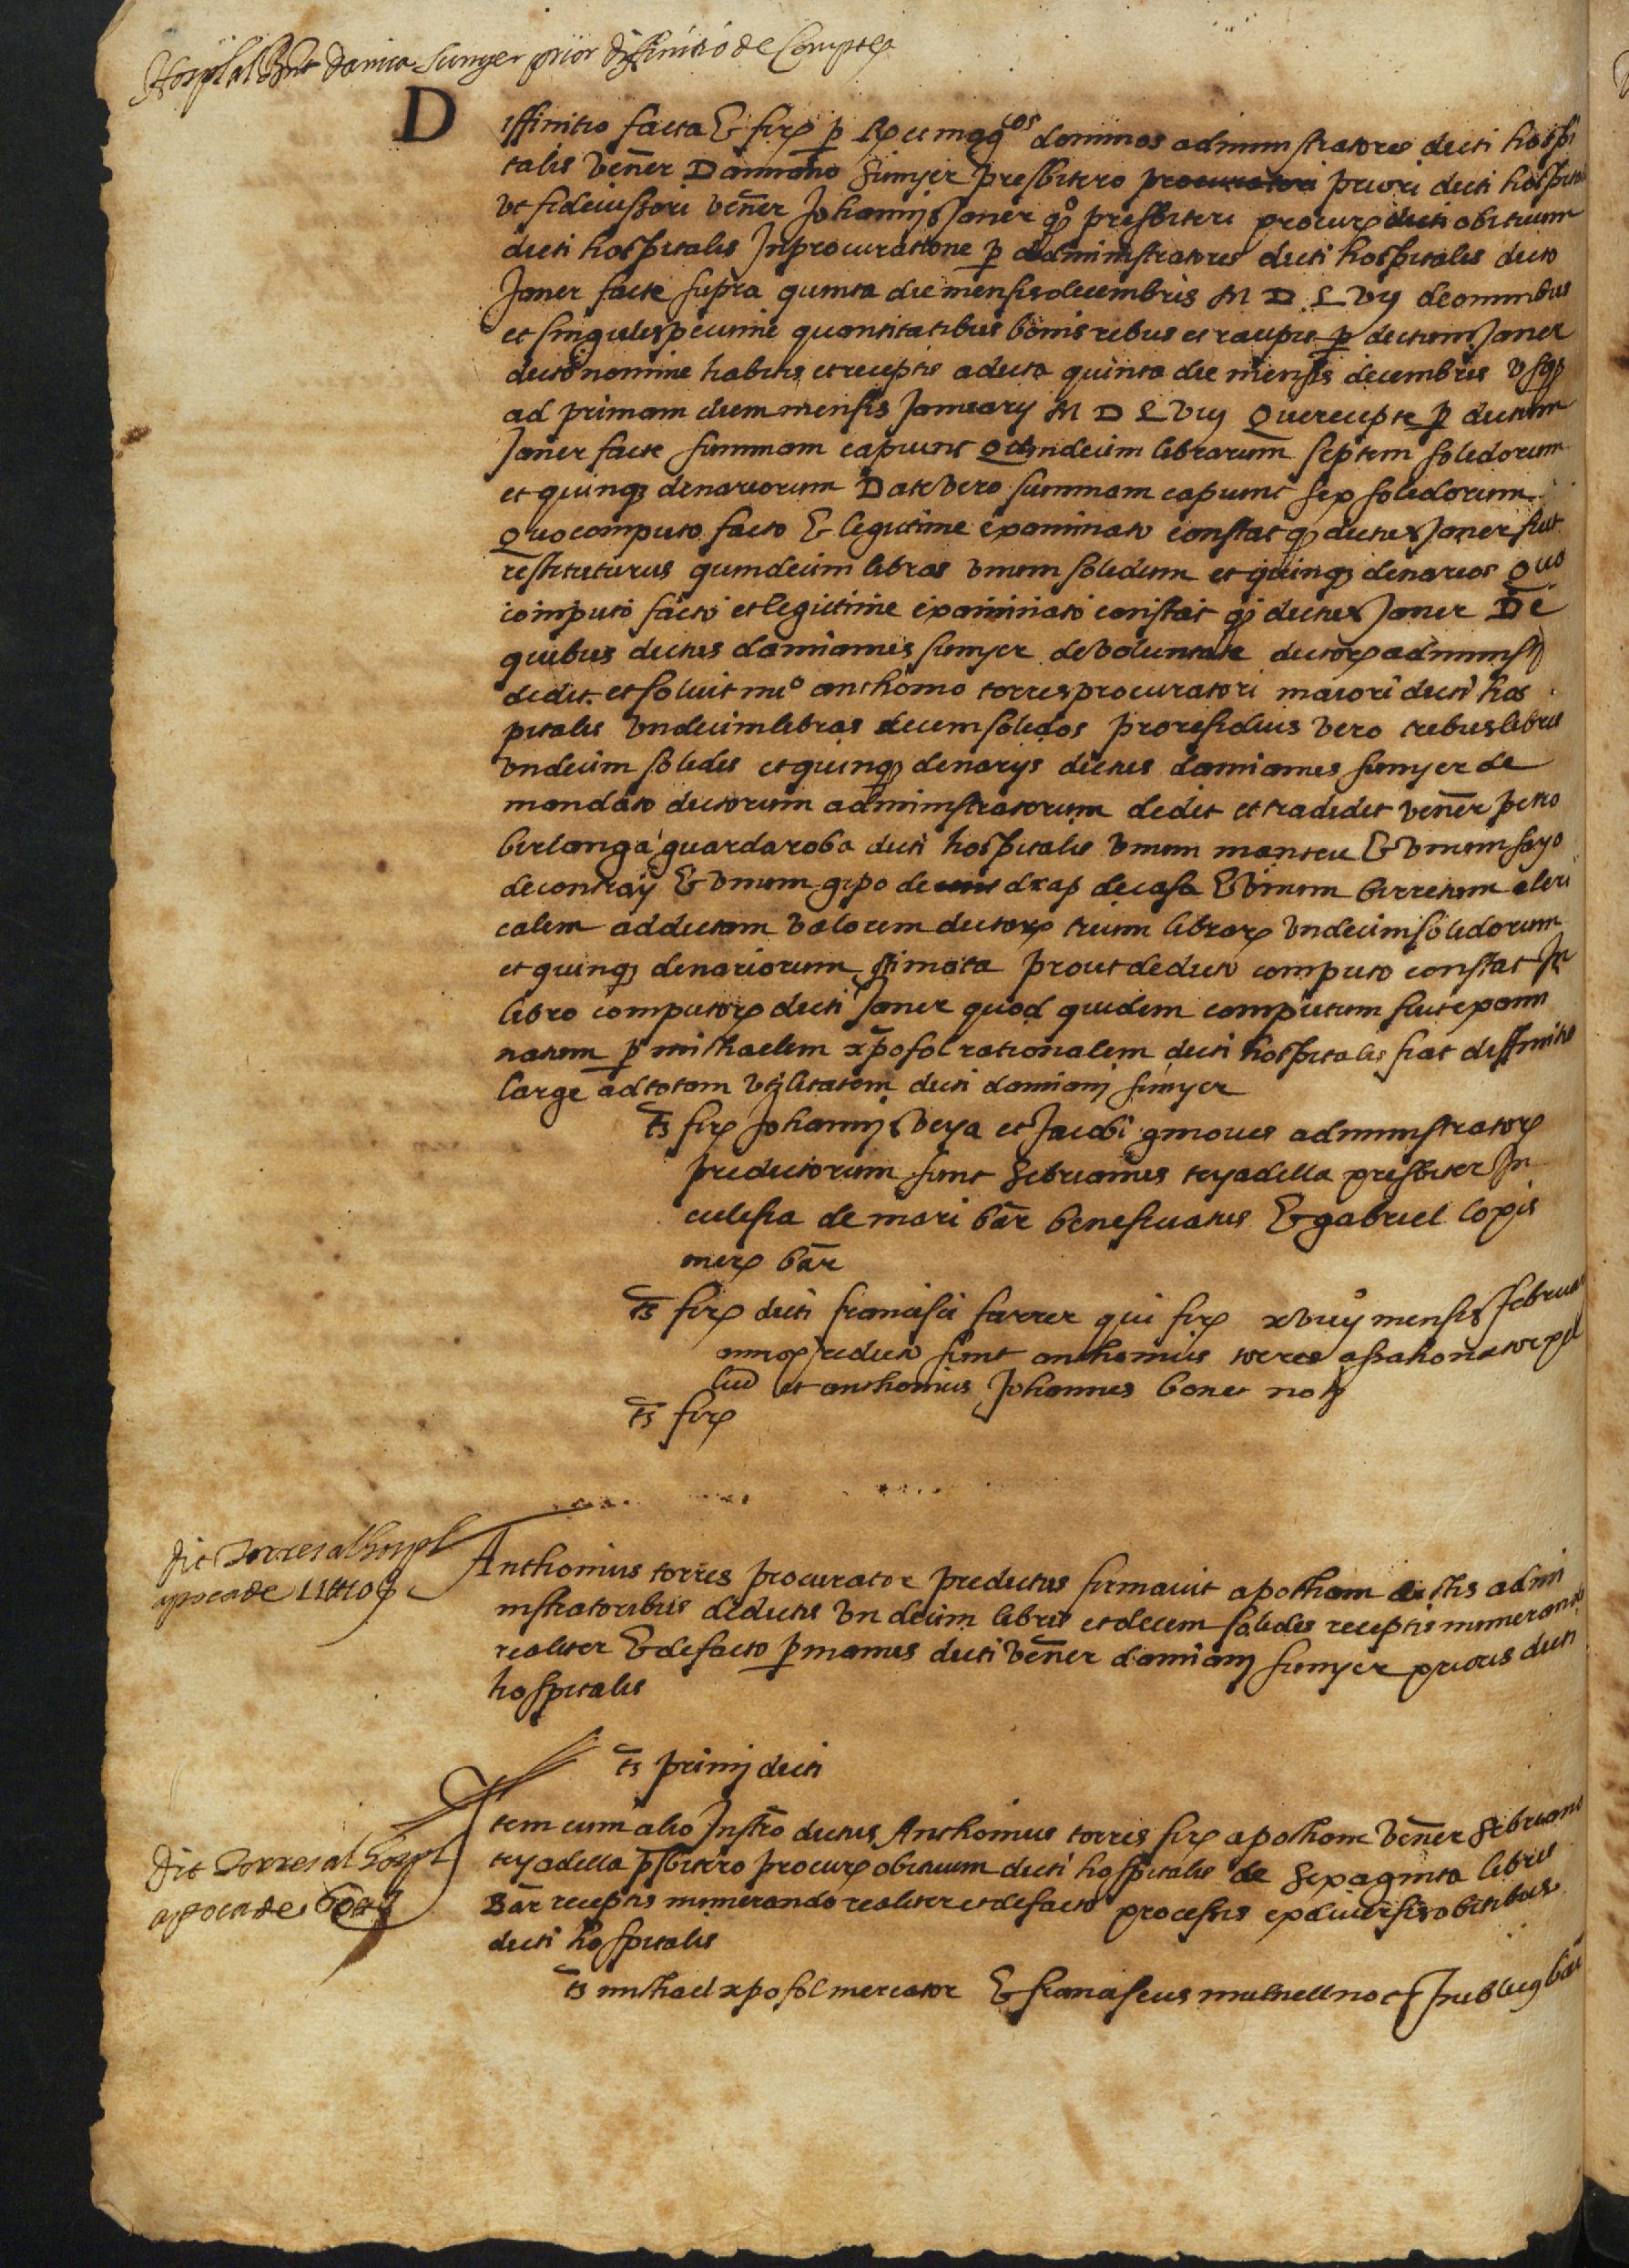 Hospital Bnt Damia Sunyer prior diffinitio de Compte
Diffinitio facta & fir p R et magcos dominos administratores dicti hospi
talis Vener Damiano Sunyer presbitero procuratori priori dicti hospitalis
Vt fideiussori Vener Johannis Janer qo presbiteri procur dicti obituum
dicti hospitalis In procuratione p administratores dicti hospitalis dicto
Janer facte supra quinta die mensis decembris M D L Vij de omnibus
et singulis pecunie quantitatibus bonis rebus et raupis p dictum Janer
dicto nomine habitis et receptis a dicta quinta die mensis decembris Vsq
ad primam diem mensis Januarij M D L Viij Que recepte p dictum
Janer facte summam capiunt Quindecim librarum septem solidorum
et quinq denariorum Date Vero summam capiunt sex solidorum
Quo computo facto & legitime examinato constat q dictus Janer fuit
restituturus quindecim libras Vnum solidum et quinq denarios Quo
computo facto et legittime examinato constat q dictus Janer De
quibus dictus damianus sunyer de Voluntate dictor administ
dedit et soluit mo anthonio torres procuratori maiori dicti hos
pitalis Vndecim libras decem solidos pro residuis Vero tribus libris
Vndecim solidis et quinq denarijs dictus damianus sunyer de
mandato dictorum administratorum dedit et tradidit Vener petro
berlanga guardaroba dicti hospitalis Vnum manteu & Vnum sayo
de contray & Vnum gipo de drap de casa & Vnum birretum cleri
calem ad dictam Valorem dictor trium librar Vndecim solidorum
et quinq denariorum stimata prout de dicto computo constat In
libro computor dicti Janer quod quidem computum fuit exami
natum p michaelem xpofol rationalem dicti hospitalis fiat diffinitio
large ad totam Vtilitatem dicti damiani sunyer
ts fir Johannis Veya et Jacobi ginoues administrator
predictorum sunt Sebrianus teyadella presbiter In
ecclesia de mari bar beneficiatus & gabriel lopis
mer bar
ts fir dicti francisci farrer qui fir xviij mensis februarij
anno predicto sunt anthonius torres
et anthonius Johannes bonet not
ts fir
dit Torres al hospl
apoca de 11 ll 10 s
Anthonius torres procurator predictus firmauit apocham dictis admi
nistratoribus de dictis Vndecim libris et decem solidis receptis numerando
realiter & de facto p manus dicti Vener damiani sunyer prioris dicti
hospitalis
ts primi dicti
dit Torres al hospl
apoca de 60 ll
Item cum alio Instro dictus Anthonius torres fir apocham Vener Sebriano
teyadella psbitero procur obituum dicti hospitalis de Sexaginta libris
Bar receptis numerando realiter et de facto processis ex diuersis obitibus
dicti hospitalis
ts michael xpofol mercator & franciscus mulnell not pub ciu bar